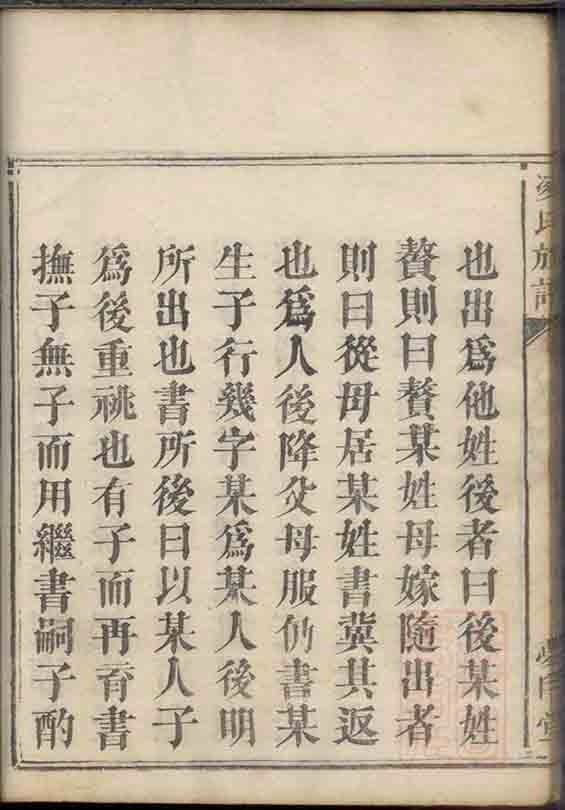 也出爲他姓後者曰後某姓
贅則曰贅某姓母嫁隨出者
則曰從母居某姓書冀其返
也爲人後降父母服仍書某
生子行幾字某爲某人後明
所出也書所後曰以某人子
爲後重祧也有子而再育書
撫子無子而用繼書嗣子酌